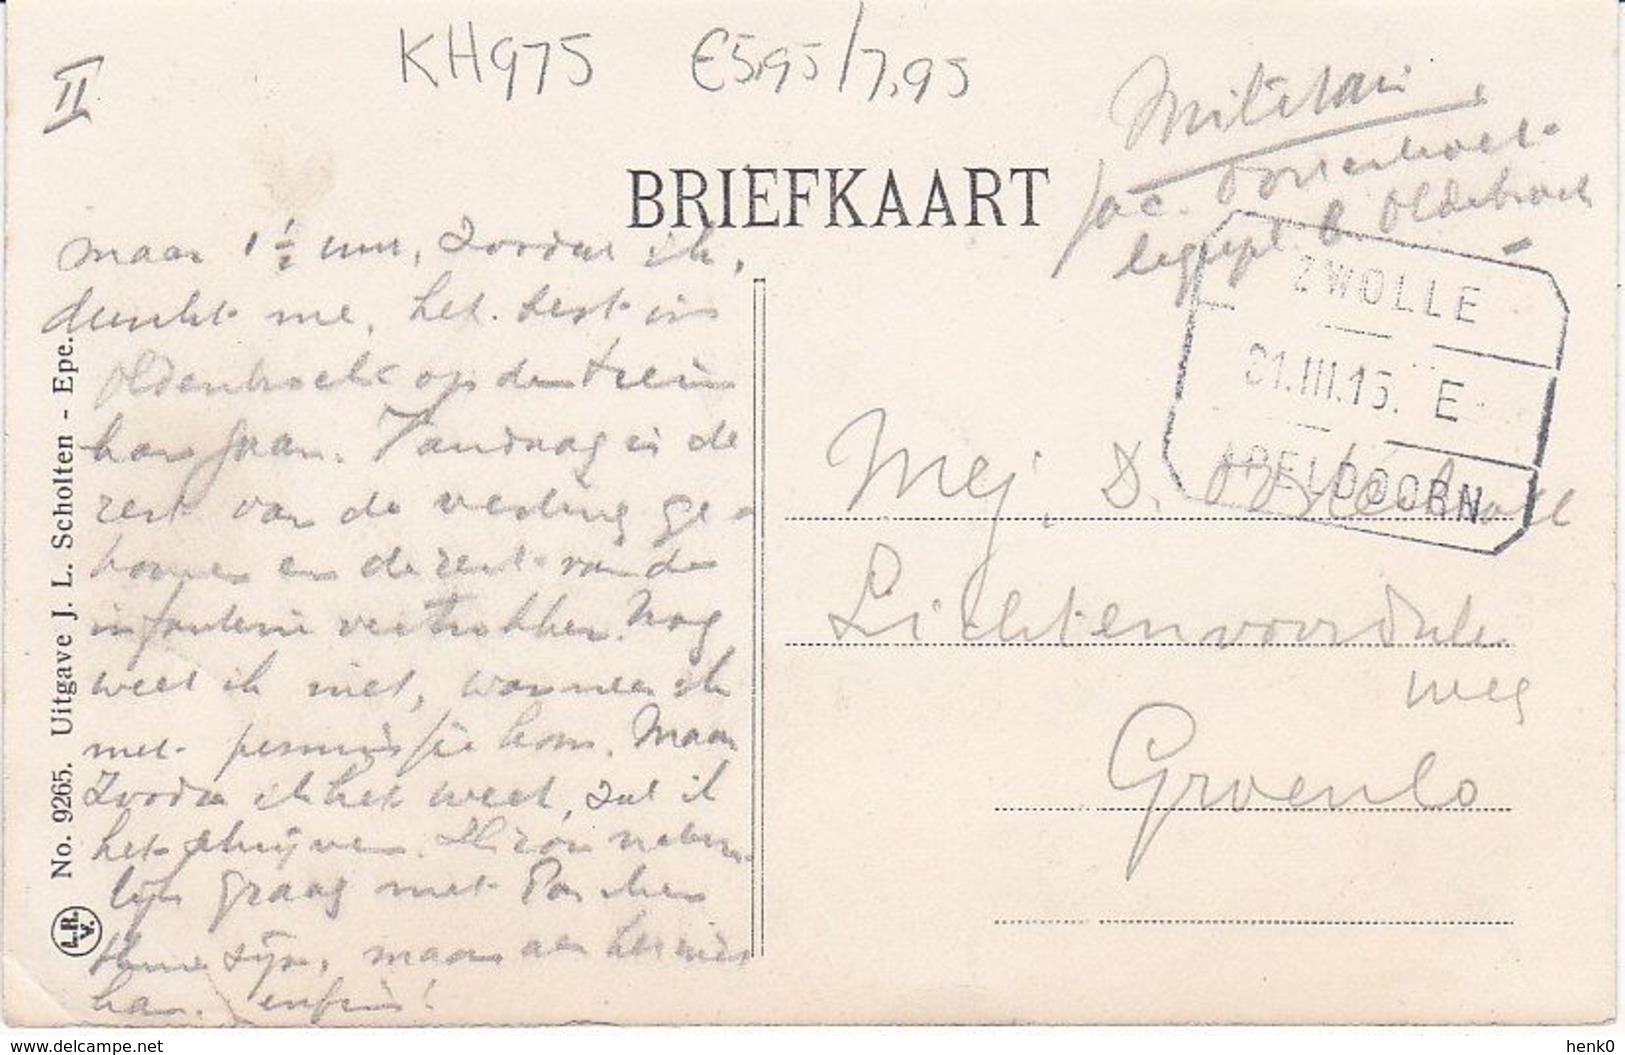 II
KH975 €5,95/7,95
Militair
Jac.
legerpl. b. Oldebroek
BRIEFKAART
ZWOLLE
21.III.15. E
APELDOORN
maar 1 1/2 uur, zoodat ik,
dunkt me, het best in
Oldenbroek op den trein
kan gaan. Vandaag is de
rest van de vesting ge-
komen en de rest van de
infanterie vertrokken. Nog
weet ik niet, wanneer ik
met permissie kom. Maar
zoodra ik het weet, zal ik
het schrijven. Ik zou namen-
lijk graag met Paschen
thuis zijn, maar als het niet
kan. enfin!
Mej. D.
Lichtenvoordsche
weg
Groenlo
No. 9265. Uitgave J. L. Scholten - Epe.
L.R.V.
www.delcampe.net
henk0